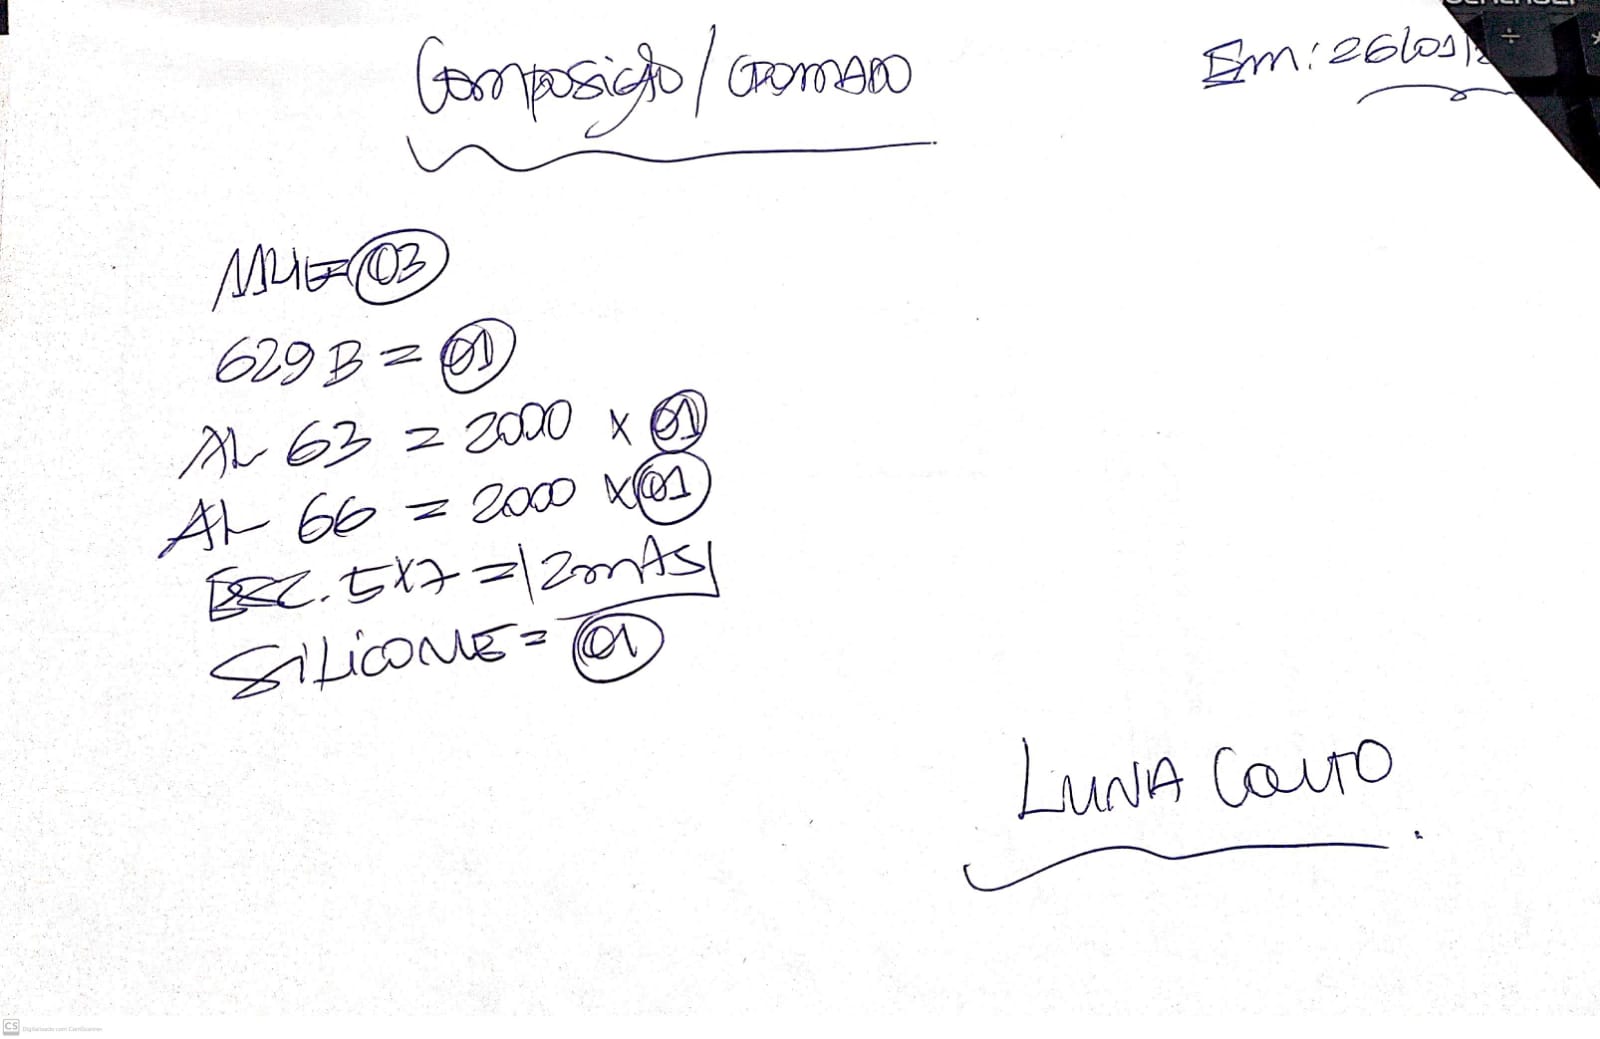 Composição / CROMADO
Em: 26/01/2
1114E = 03
629 B = 01
AL 63 = 2000 x 01
AL 66 = 2000 x 01
ESC. 5X7 = 2mAS
SILICONE = 01
LUNA COUTO
CS Digitalizado com CamScanner